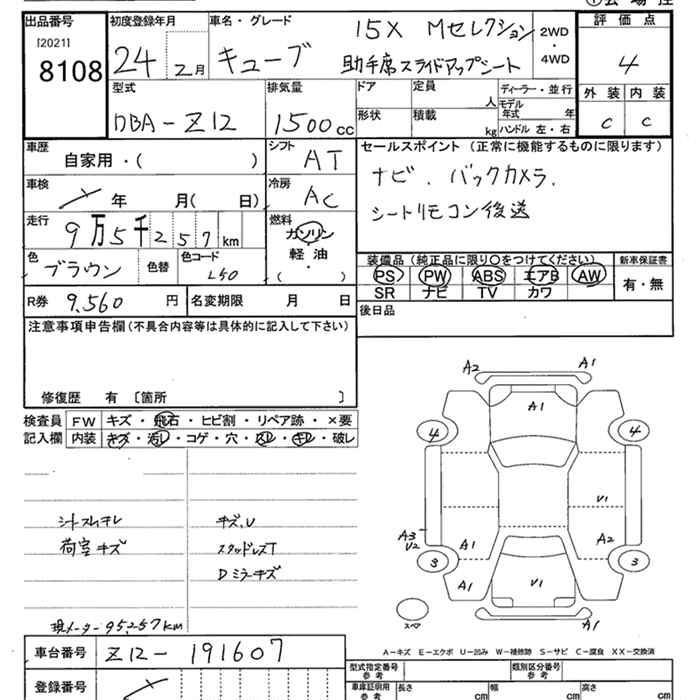 出品番号 初度登録年月 車名・グレード 評価点
[2021] 8108 24年2月 キューブ 15X Mセレクション 2WD・4WD 4
助手席スライドアップシート
型式 排気量 ドア 定員 人 ディーラー・並行 外装 内装
DBA-Z12 1500cc 形状 積載 kg モデル年式 年 ハンドル 左・右 C C
車歴 自家用・( ) シフト AT セールスポイント (正常に機能するものに限ります)
車検 年 月(日) 冷房 AC ナビ.バックカメラ.
走行 9万5千257km 燃料 ガソリン 軽油 ・ ( ) シートリモコン後送
色 ブラウン 色替 色コード L50 装備品(純正品に限り○をつけてください) 新車保証書
PS PW ABS エアB AW 有・無
R券 9,560円 名変期限 月 日 SR ナビ TV カワ
注意事項申告欄(不具合内容等は具体的に記入して下さい) 後日品
修復歴 有 〔箇所 〕
検査員 FW キズ・飛石・ヒビ割・リペア跡・×要
記入欄 内装 キズ・汚レ・コゲ・穴・スレ・キレ・破レ
A2 A1
A1
4 4
V1
A3 V2 A1 A2
3 3
A1 V1
スペア A1
シートスレキレ キズ、U
荷室キズ スタッドレスT
Dミラーキズ
現メーター95257km
A-キズ E-エクボ U-凹み W-補修跡 S-サビ C-腐食 XX-交換済
車台番号 Z12-191607 型式指定番号 参考 類別区分番号 参考
登録番号 車庫証明用 参考 長さ cm 幅 cm 高さ cm